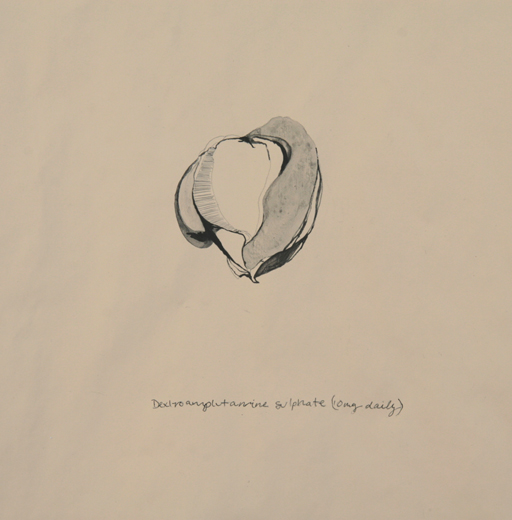 Dextroamphetamine sulphate (10mg daily)